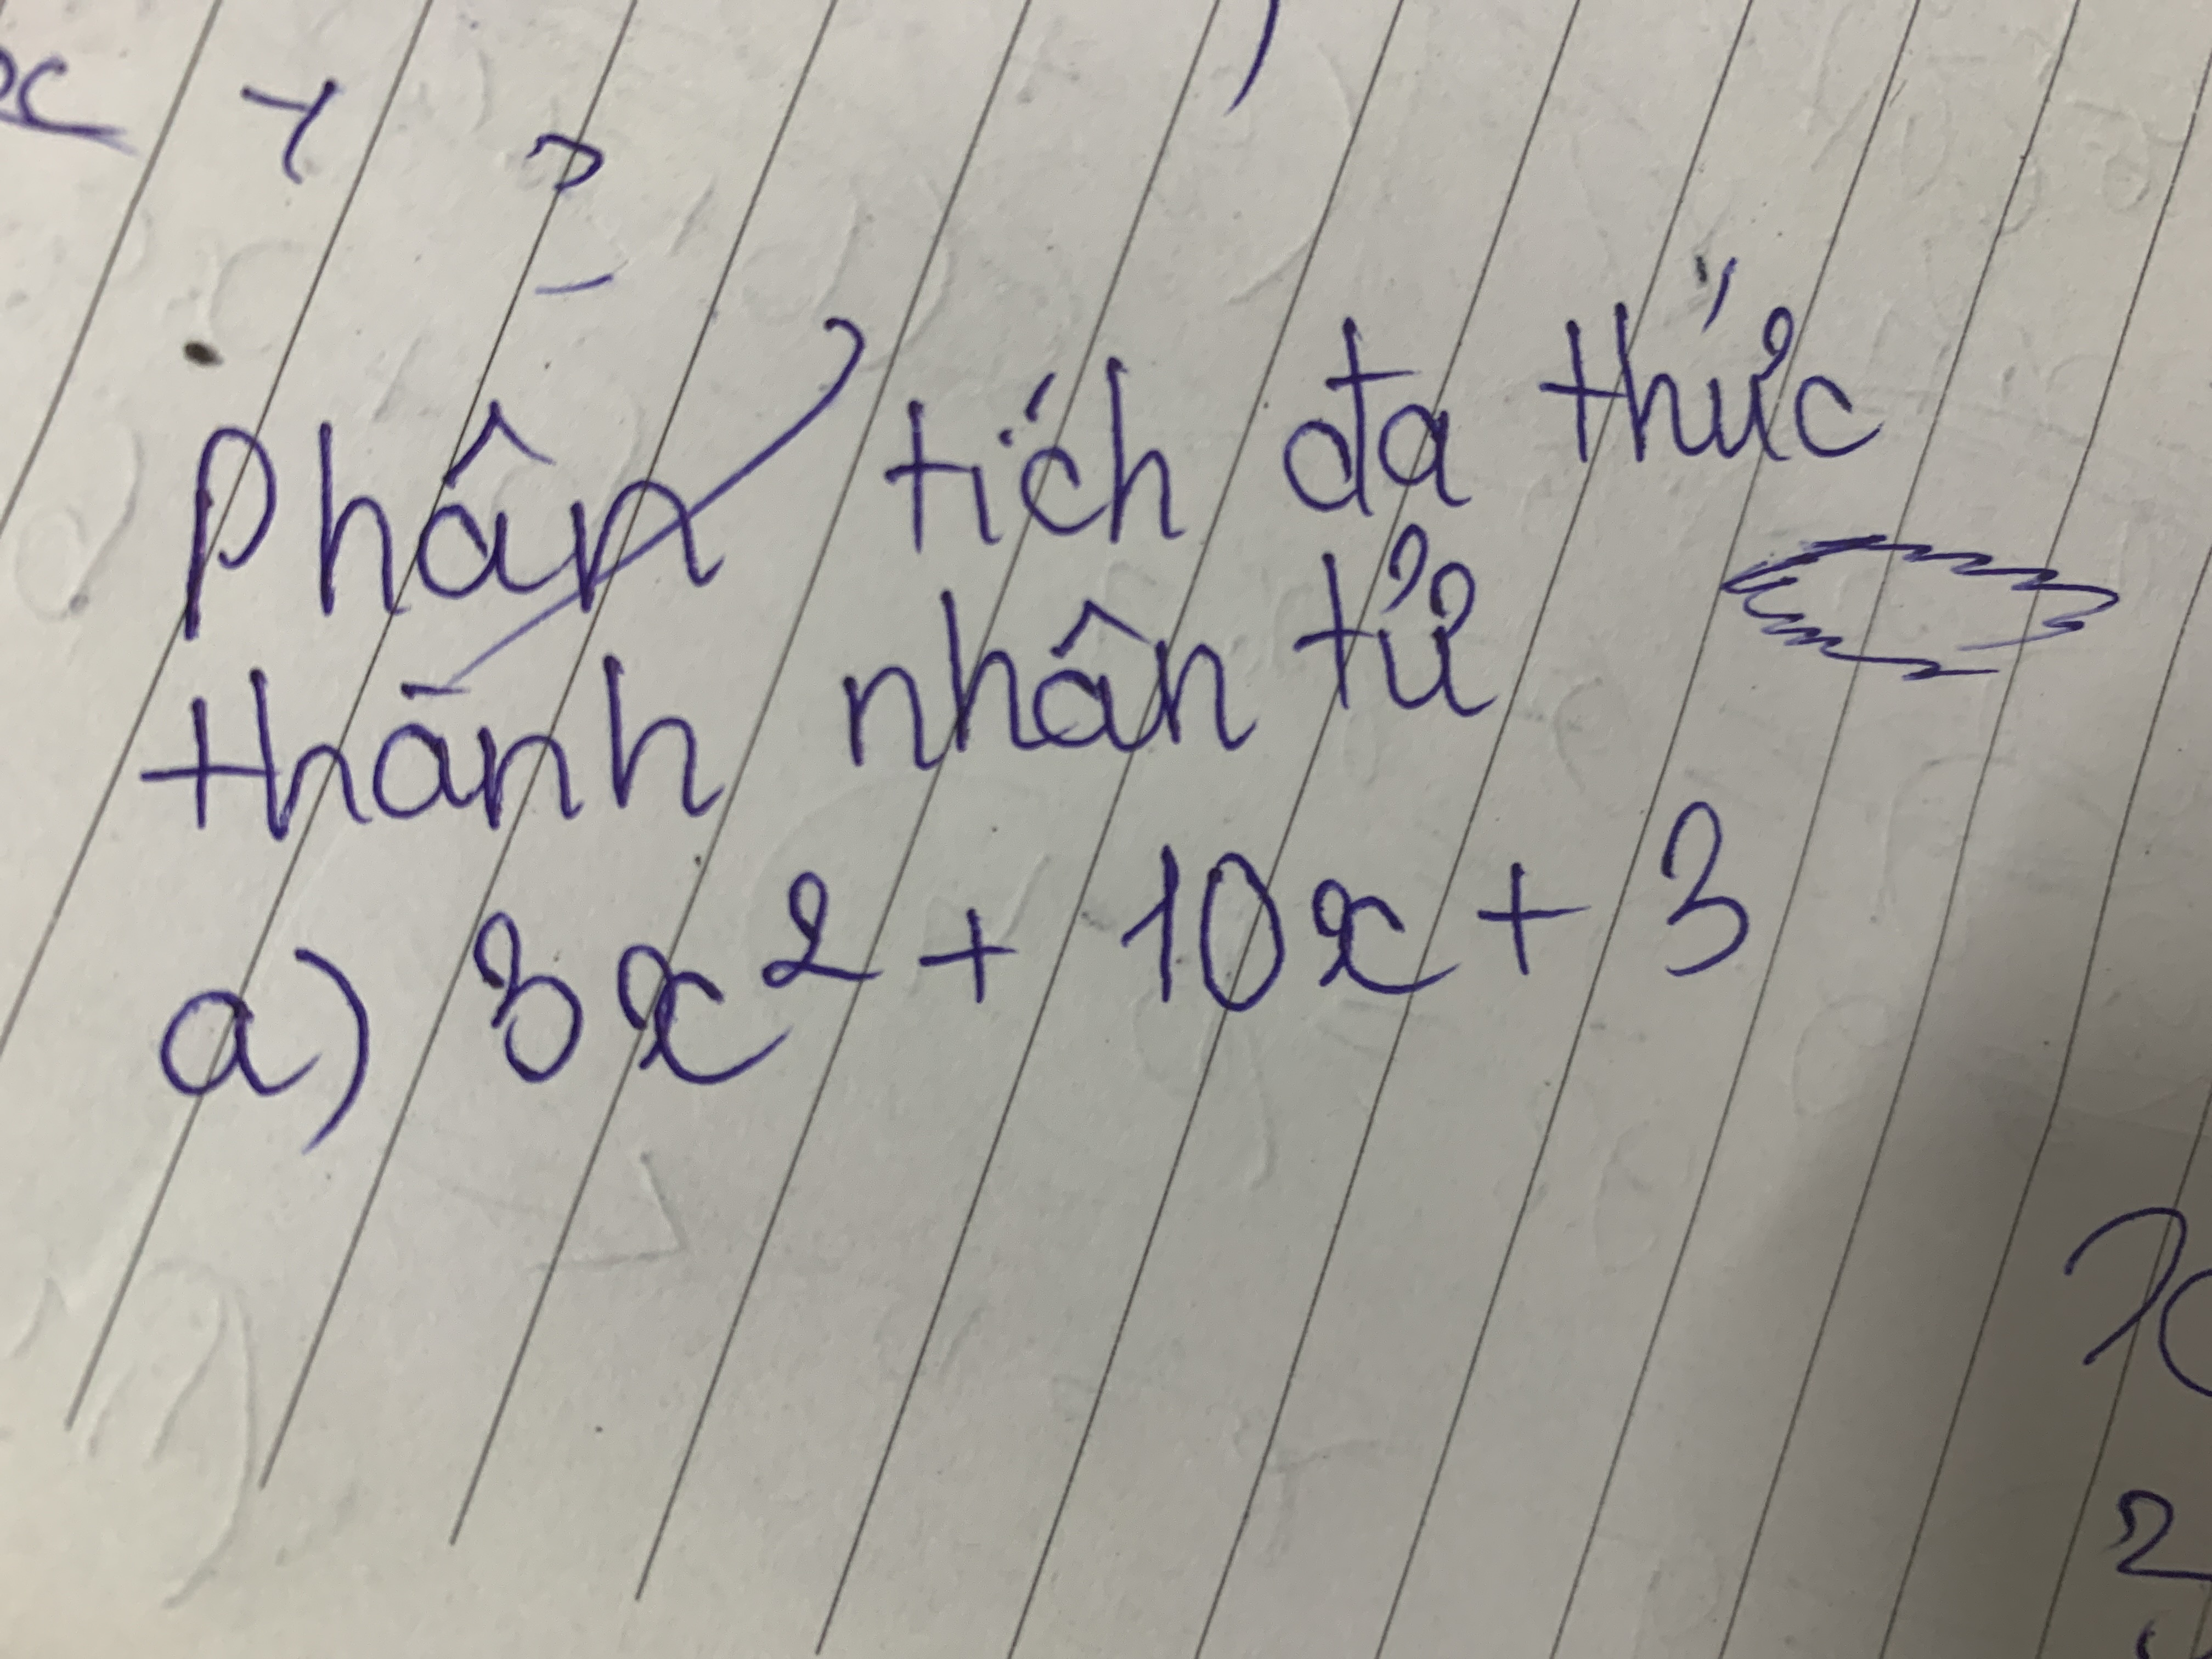 Phân tích đa thức
thành nhân tử
a) 3x² + 10x + 3